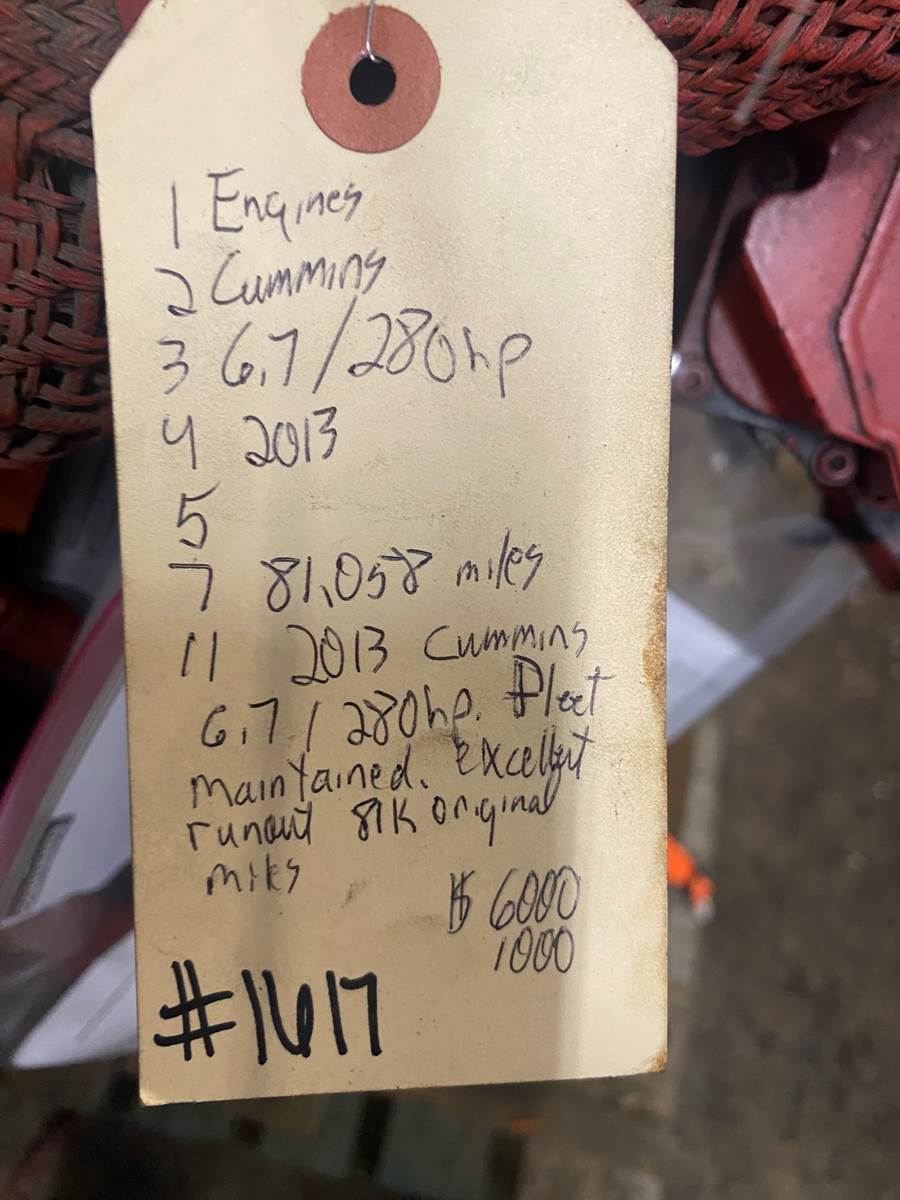 1 Engines
2 Cummins
3 6.7/280hp
4 2013
5
7 81,058 miles
11 2013 Cummins
6.7/280hp. Fleet
maintained. excellent
runout 81K original
miles
$ 6000
1000
#1617